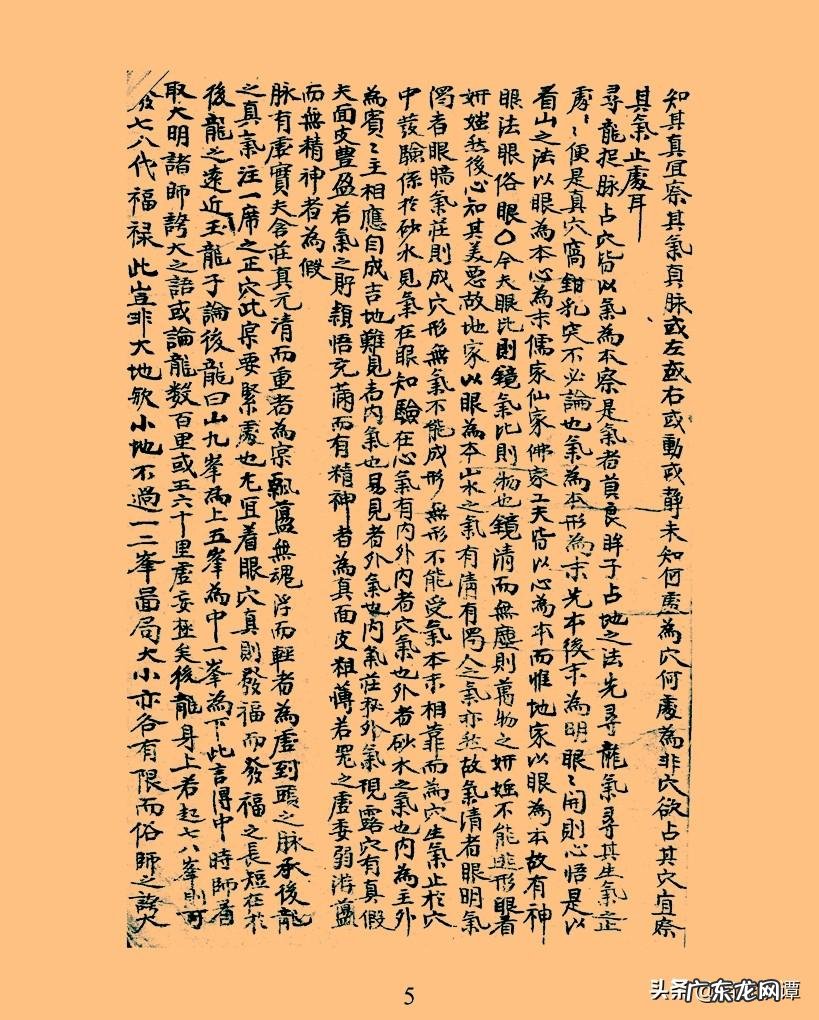 知其真宜察其氣真脉或左或右或動或静未知何處為穴何處為非穴欲占其穴宜察
其氣止處耳
尋龍把脉占穴皆以氣為本察是氣者莫良眸子占地之法先尋龍氣尋其生氣之止
處〻便是真穴窩鉗乳突不必論也氣為本形為末先本後末為明眼〻開則心悟是以
看山之法以眼為本心為末儒家仙家佛家工夫皆以心為本而惟地家以眼為本故有神
眼法眼俗眼〇今夫眼比則鏡氣比則物也鏡清而無塵則萬物之妍媸不能逃形眼看
妍媸然後心知其美惡故地家以眼為本山水之氣有清有濁人之氣亦然故氣清者眼明氣
濁者眼暗氣莊則成穴形無氣不能成形無形不能受氣本末相靠而為穴生氣止於穴
中發驗係於砂水見氣在眼知驗在心氣有内外内者穴氣也外者砂水之氣也内為主外
為賓〻主相應自成吉地難見者内氣也易見者外氣也内氣莊秘外氣現露穴有真假
夫面皮豊盈若氣之貯穎悟充滿而有精神者為真面皮粗薄若冤之虛委弱游蕩
而無精神者為假
脉有虛實夫含莊真元清而重者為宗飄蕩無魂浮而輕者為虛到頭之脉承後龍
之真氣注一席之正穴此宗要緊處也尤宜着眼穴真則發福而發福之長短在於
後龍之遠近玉龍子論後龍曰山九峯為上五峯為中一峯為下此言得中時師看
取大明諸師誇大之語或論龍数百里或五六十里虛妄極矣後龍身上若起七八峯則可
發七八代福禄此豈非大地歟小地不過一二峯啚局大小亦各有限而俗師之誇大
5
头条
广东龙网
潭